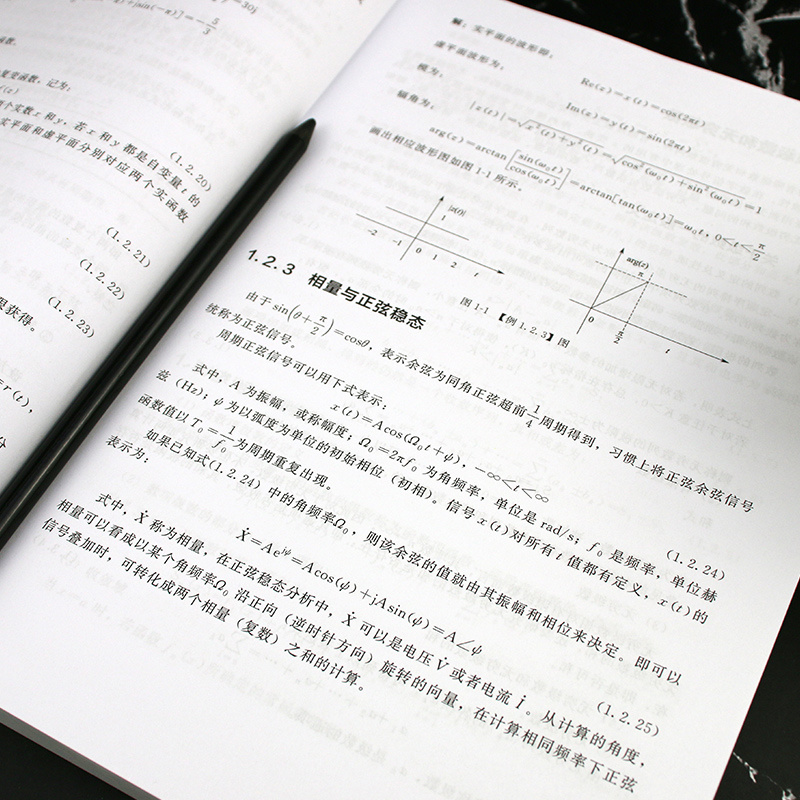 −30j
+jsin(−π)]=−5/3
函数。
复变函数，记为：
(z)
两个实数x和y，若x和y都是自变量t的
实平面和虚平面分别对应两个实函数
(1.2.20)
(1.2.21)
(1.2.22)
(1.2.23)
限获得。
=r(t),
分
解：实平面的波形即：
Re(z)=x(t)=cos(2πt)
虚平面波形为：
Im(z)=y(t)=sin(2πt)
模为：
|z(t)|=√(x²(t)+y²(t))=√(cos²(ω₀t)+sin²(ω₀t))=1
辐角为：
arg(z)=arctan[sin(ω₀t)/cos(ω₀t)]=arctan[tan(ω₀t)]=ω₀t, 0<t<π/2
画出相应波形图如图1-1所示。
|z(t)|
1
−2 −1 0 1 2 t
arg(z)
π
0 π/2 t
图1-1 【例1.2.3】图
1.2.3 相量与正弦稳态
由于sin(θ+π/2)=cosθ，表示余弦为同角正弦超前1/4周期得到，习惯上将正弦余弦信号
统称为正弦信号。
周期正弦信号可以用下式表示：
x(t)=Acos(Ω₀t+ψ), −∞<t<∞ (1.2.24)
式中，A为振幅，或称幅度；Ω₀=2πf₀为角频率，单位是rad/s；f₀是频率，单位赫
兹（Hz）；ψ为以弧度为单位的初始相位（初相）。信号x(t)对所有t值都有定义，x(t)的
函数值以T₀=1/f₀为周期重复出现。
如果已知式(1.2.24)中的角频率Ω₀，则该余弦的值就由其振幅和相位来决定。即可以
表示为：
Ẋ=Ae^{jψ}=Acos(ψ)+jAsin(ψ)=A∠ψ (1.2.25)
式中，Ẋ称为相量，在正弦稳态分析中，Ẋ可以是电压V̇或者电流İ。从计算的角度，
相量可以看成以某个角频率Ω₀沿正向（逆时针方向）旋转的向量，在计算相同频率下正弦
信号叠加时，可转化成两个相量（复数）之和的计算。